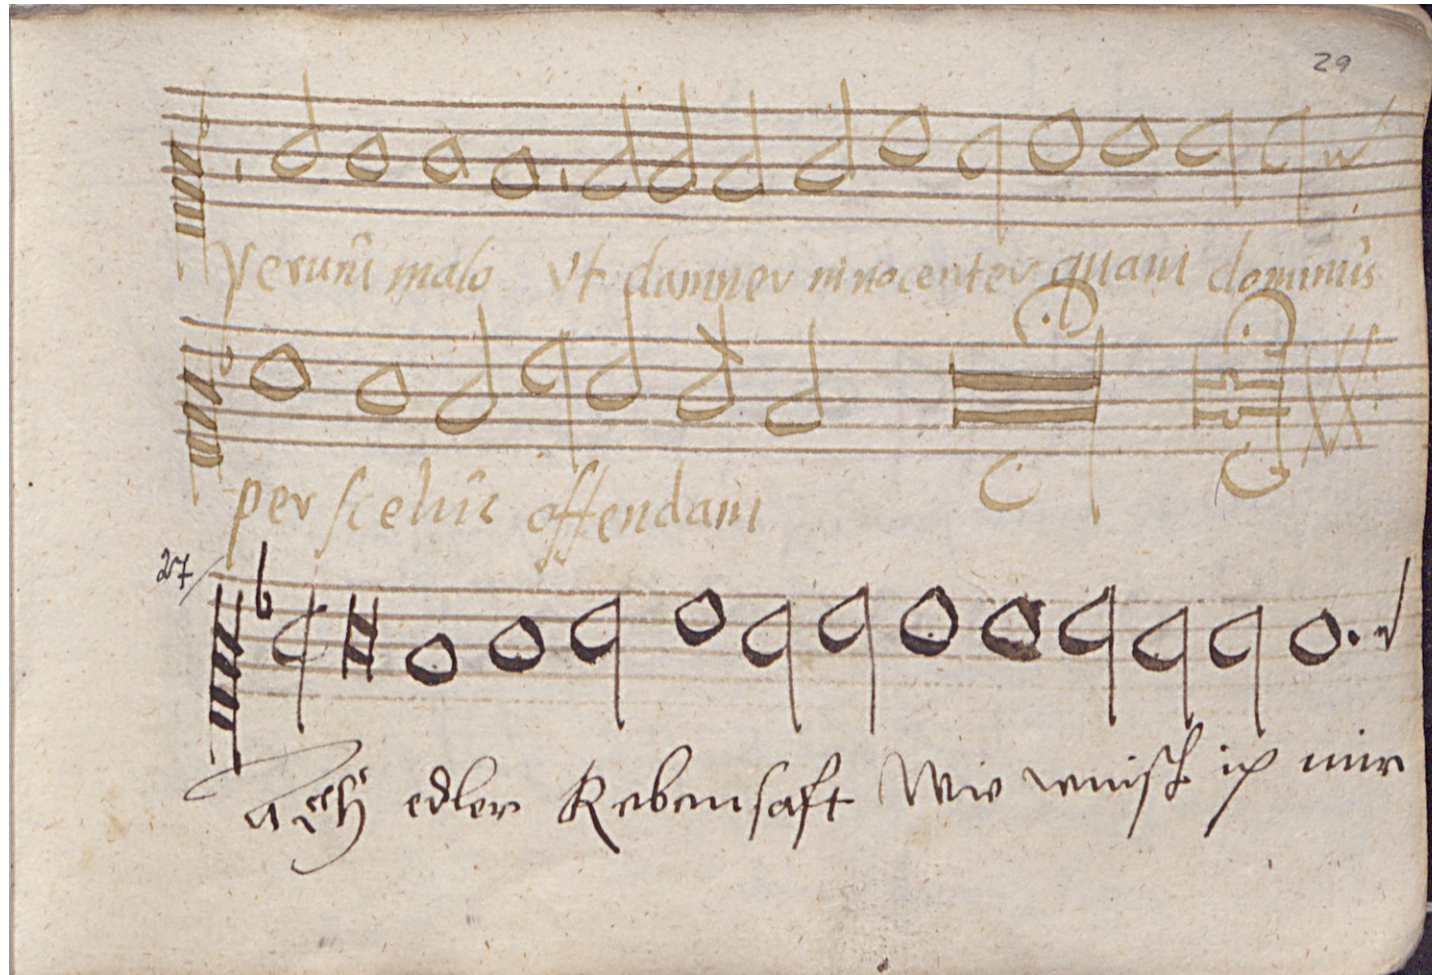 29
Verum malo Vt damner innocenter quam dominus
per scelus offendam
27
Ach edler Rebensaft Wie wünsch ich mir